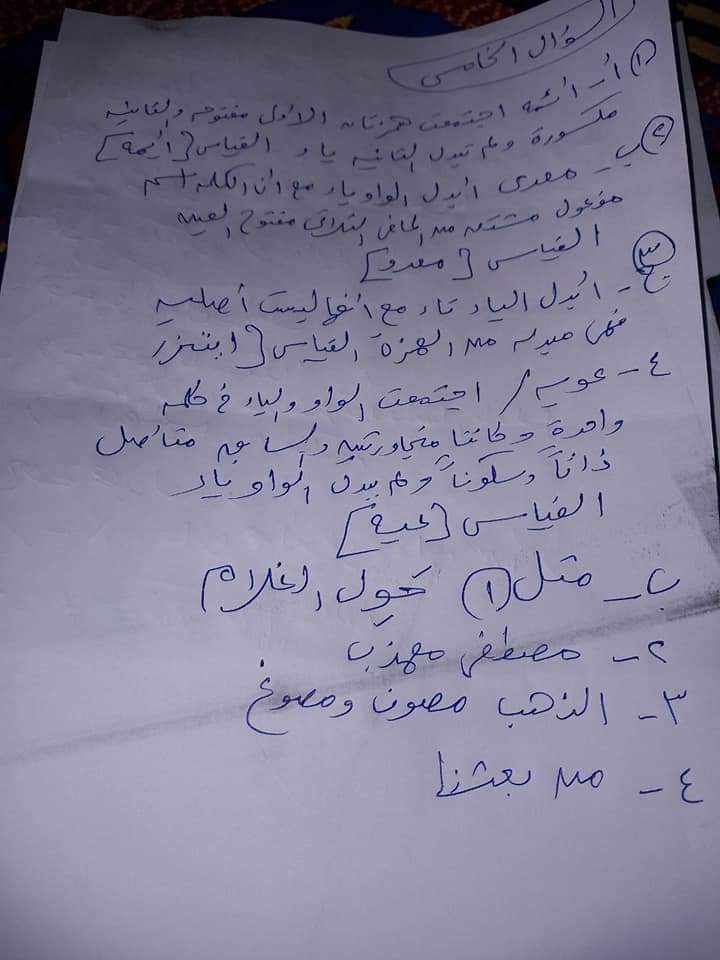 السؤال الخامس
١) أ - أئمة اجتمعت همزتان الأولى مفتوحة والثانية
مكسورة ولم تبدل الثانية ياء القياس [أيمة]
٢) ب - معدى أبدل الواو ياء مع أن الكلمة اسم
مفعول مشتق من الماضى الثلاثى مفتوح العين
القياس [معدو]
٣) ج - أبدل الياء تاء مع أنها ليست أصلية
فهى مبدلة من الهمزة القياس [ايتزر
٤ - عوية / اجتمعت الواو والياء فى كلمة
واحدة وكانتا متجاورتين والسابق متأصل
ذاتاً وسكوناً ولم يبدل الواو ياء
القياس [عية]
ب - مثل (١) الغلام
٢ - مصطفى مهذب
٣ - الذهب مصون ومصوغ
٤ - من بعثنا